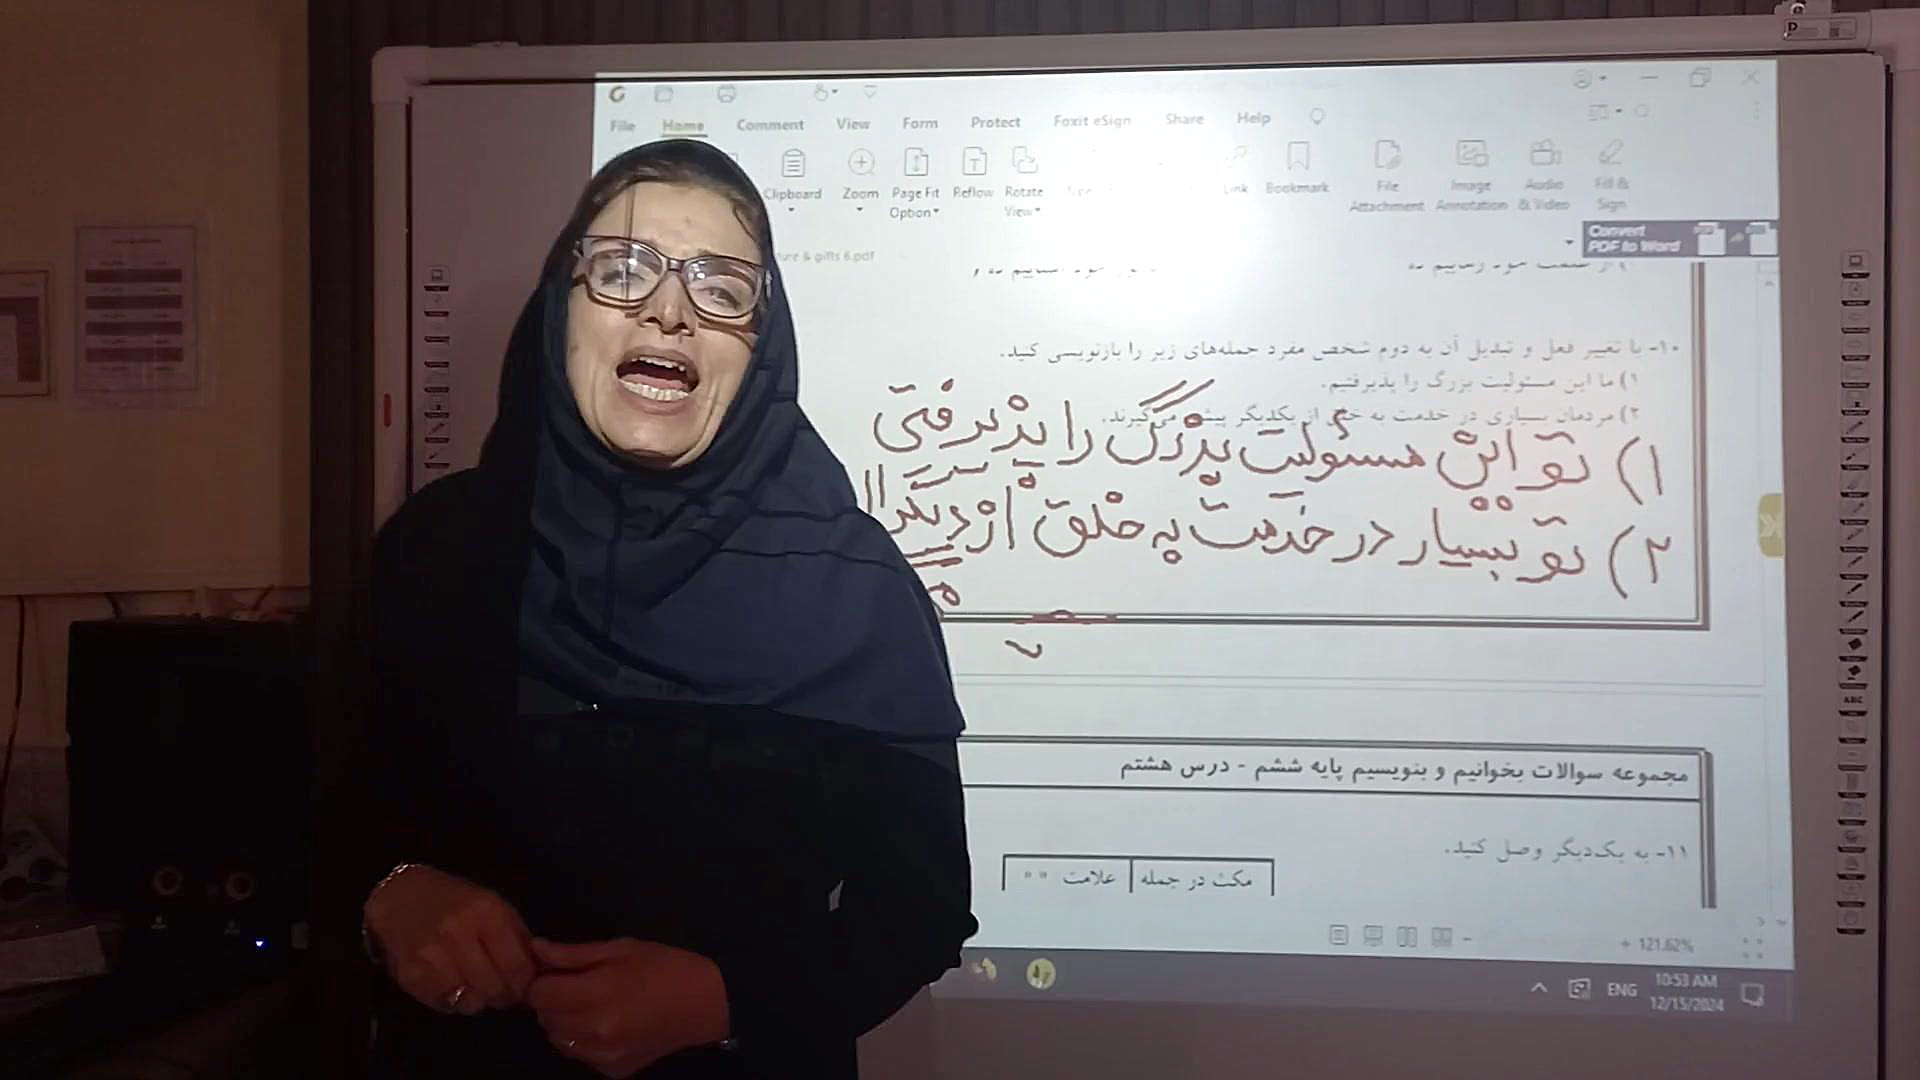 File Home Comment View Form Protect Foxit eSign Share Help
Clipboard Zoom Page Fit Option Reflow Rotate View Link Bookmark File Attachment Image Annotation Audio & Video Fill & Sign
Convert PDF to Word
ure & gifts 6.pdf
۱۰- با تغییر فعل و تبدیل آن به دوم شخص مفرد جمله‌های زیر را بازنویسی کنید.
۱) ما این مسئولیت بزرگ را پذیرفتیم.
۲) مردمان بسیاری در خدمت به خلق از یکدیگر پیشی می‌گیرند.
۱) تو این مسئولیت بزرگ را پذیرفتی
۲) تو بسیار در خدمت به خلق از دیگران
مجموعه سوالات بخوانیم و بنویسیم پایه ششم - درس هشتم
۱۱- به یک‌دیگر وصل کنید.
مکث در جمله علامت « »
121.62%
ENG 10:53 AM
12/15/2024
ABC